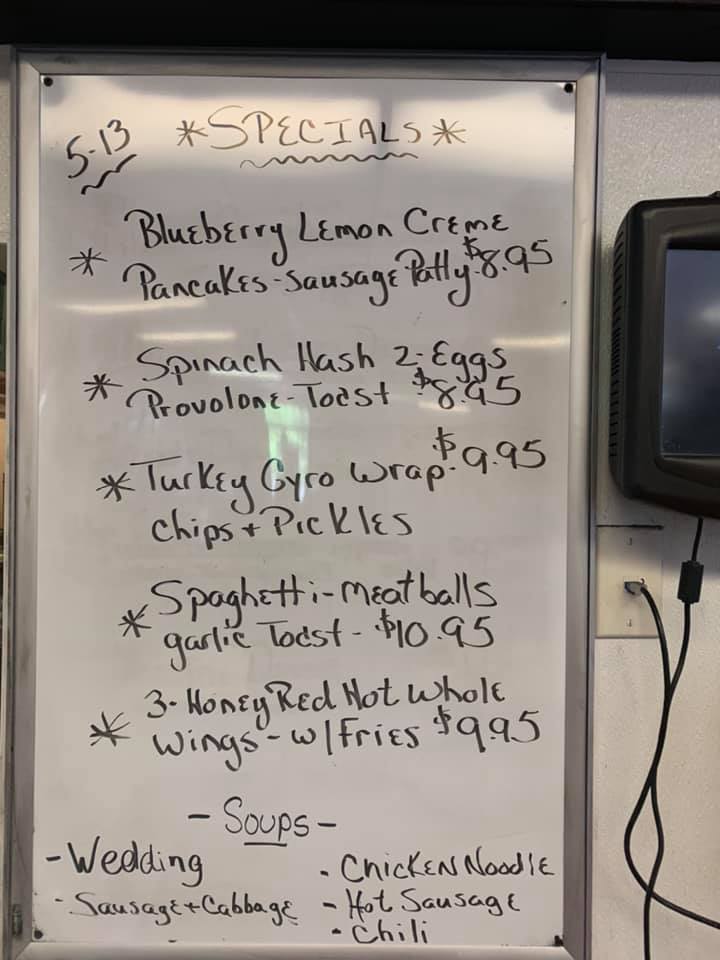 5.13 *SPECIALS*
* Blueberry Lemon Creme
Pancakes-Sausage Patty $8.95
* Spinach Hash 2-Eggs
Provolone-Toast $8.95
* Turkey Gyro Wrap- $9.95
Chips + Pickles
* Spaghetti-Meatballs
garlic Toast - $10.95
* 3-Honey Red Hot Whole
Wings - w/Fries $9.95
- Soups -
- Wedding
- Chicken Noodle
- Sausage + Cabbage
- Hot Sausage
- Chili